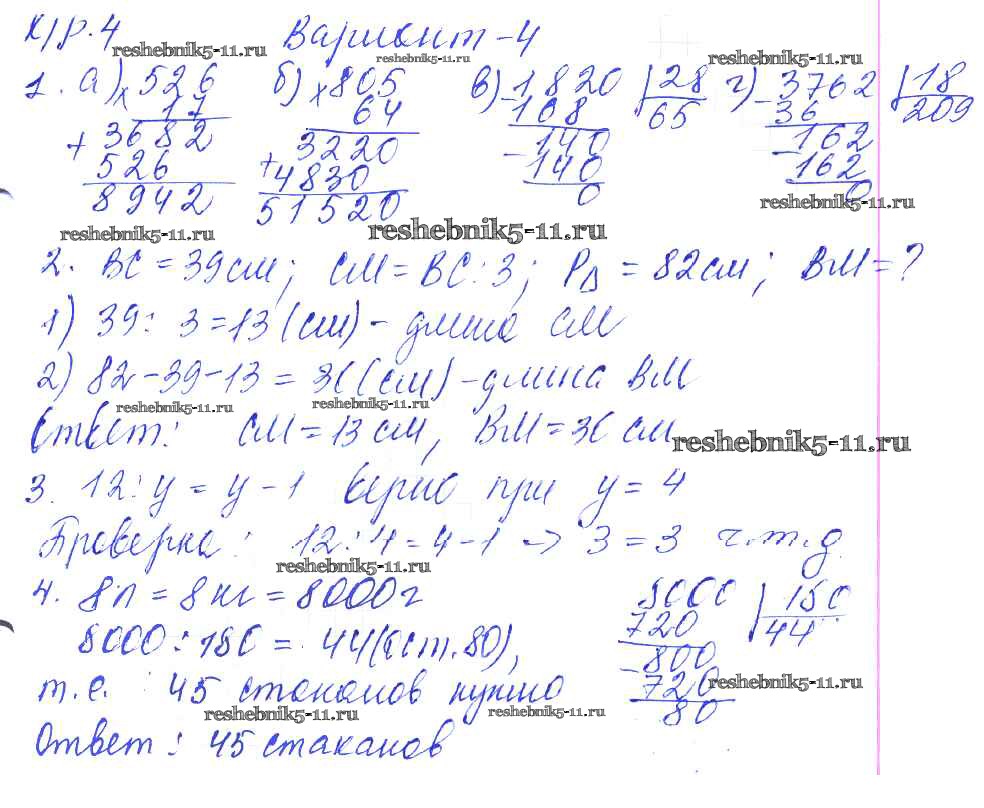 К/р. 4 Вариант-4
reshebnik5-11.ru reshebnik5-11.ru reshebnik5-11.ru
1. а) x 526 б) x 805 в) 1820 | 28 г) 3762 | 18
17 64 - 168 65 - 36 209
+ 3682 3220 140 - 162
526 + 4830 - 140 162
8942 51520 0 0
reshebnik5-11.ru reshebnik5-11.ru reshebnik5-11.ru
2. ВС = 39 см; СМ = ВС : 3; PΔ = 82 см; ВМ = ?
1) 39 : 3 = 13 (см) - длина СМ
2) 82 - 39 - 13 = 30 (см) - длина ВМ
reshebnik5-11.ru reshebnik5-11.ru
Ответ: СМ = 13 см, ВМ = 30 см
reshebnik5-11.ru
3. 12 : у = у - 1 верно при у = 4
Проверка: 12 : 4 = 4 - 1 -> 3 = 3 ч.т.д.
reshebnik5-11.ru
4. 8л = 8кг = 8000г 8000 | 180
8000 : 180 = 44 (ост. 80), 720 44
- 800
т.е. 45 стаканов нужно 720
reshebnik5-11.ru reshebnik5-11.ru reshebnik5-11.ru
80
Ответ: 45 стаканов